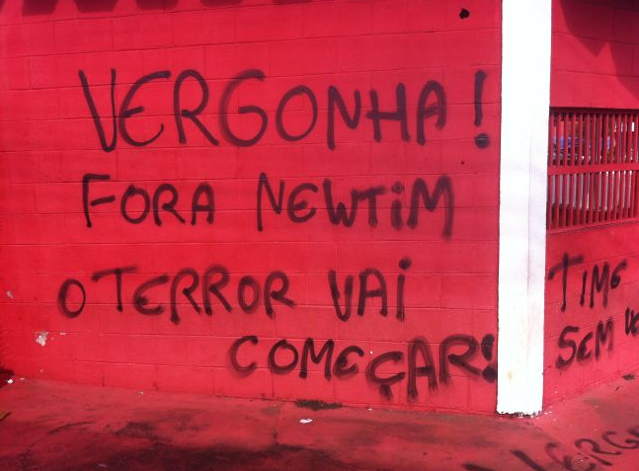 VERGONHA!
FORA NEWTiM
O TERROR VAi
COMEÇAR!
TIME
SEM